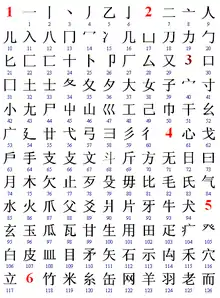 1 一 丨 丶 丿 乙 亅 2 二 亠 人
1 2 3 4 5 6 7 8 9
儿 入 八 冂 冖 冫 几 凵 刀 力 勹
10 11 12 13 14 15 16 17 18 19 20
匕 匚 匸 十 卜 卩 厂 厶 又 3 口
21 22 23 24 25 26 27 28 29 30
囗 土 士 夂 夊 夕 大 女 子 宀 寸
31 32 33 34 35 36 37 38 39 40 41
小 尢 尸 屮 山 巛 工 己 巾 干 幺
42 43 44 45 46 47 48 49 50 51 52
广 廴 廾 弋 弓 彐 彡 彳 4 心 戈
53 54 55 56 57 58 59 60 61 62
戶 手 支 攴 文 斗 斤 方 无 日 曰
63 64 65 66 67 68 69 70 71 72 73
月 木 欠 止 歹 殳 毋 比 毛 氏 气
74 75 76 77 78 79 80 81 82 83 84
水 火 爪 父 爻 爿 片 牙 牛 犬 5
85 86 87 88 89 90 91 92 93 94
玄 玉 瓜 瓦 甘 生 用 田 疋 疒 癶
95 96 97 98 99 100 101 102 103 104 105
白 皮 皿 目 矛 矢 石 示 禸 禾 穴
106 107 108 109 110 111 112 113 114 115 116
立 6 竹 米 糸 缶 网 羊 羽 老 而
117 118 119 120 121 122 123 124 125 126